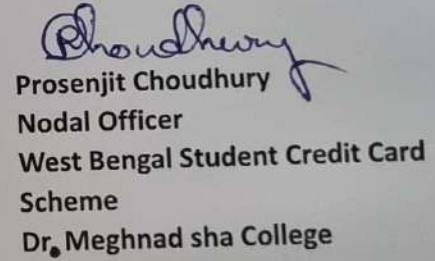 PChoudhury
Prosenjit Choudhury
Nodal Officer
West Bengal Student Credit Card
Scheme
Dr. Meghnad sha College